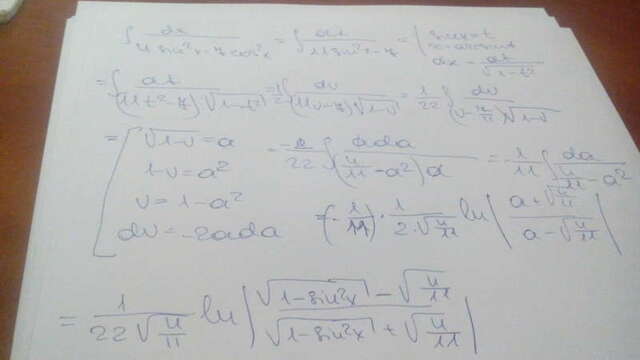 ∫ dx / (4 sin²x − 7 cos²x) = ∫ dt / (11 sin²x − 7) = { sin x = t
x = arcsin t
dx = dt / √(1−t²)
= ∫ dt / ((11t² − 7) √(1−t²)) = 1/2 ∫ dv / ((11v − 7) √(1−v)) = 1/22 ∫ dv / ((v − 7/11) √(1−v))
= [ √(1−v) = a
1−v = a²
v = 1−a²
dv = −2ada
−2/22 ∫ ada / ((4/11 − a²) a) = −1/11 ∫ da / (4/11 − a²)
= (−1/11) · 1 / (2·√(4/11)) ln | (a + √(4/11)) / (a − √(4/11)) |
= 1 / (22 √(4/11)) ln | (√(1−sin²x) − √(4/11)) / (√(1−sin²x) + √(4/11)) |